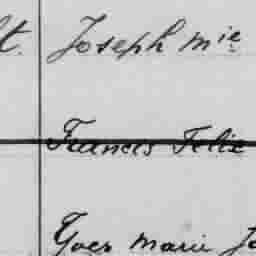 t. Joseph mie
Frances Felie
Yves marie Jo